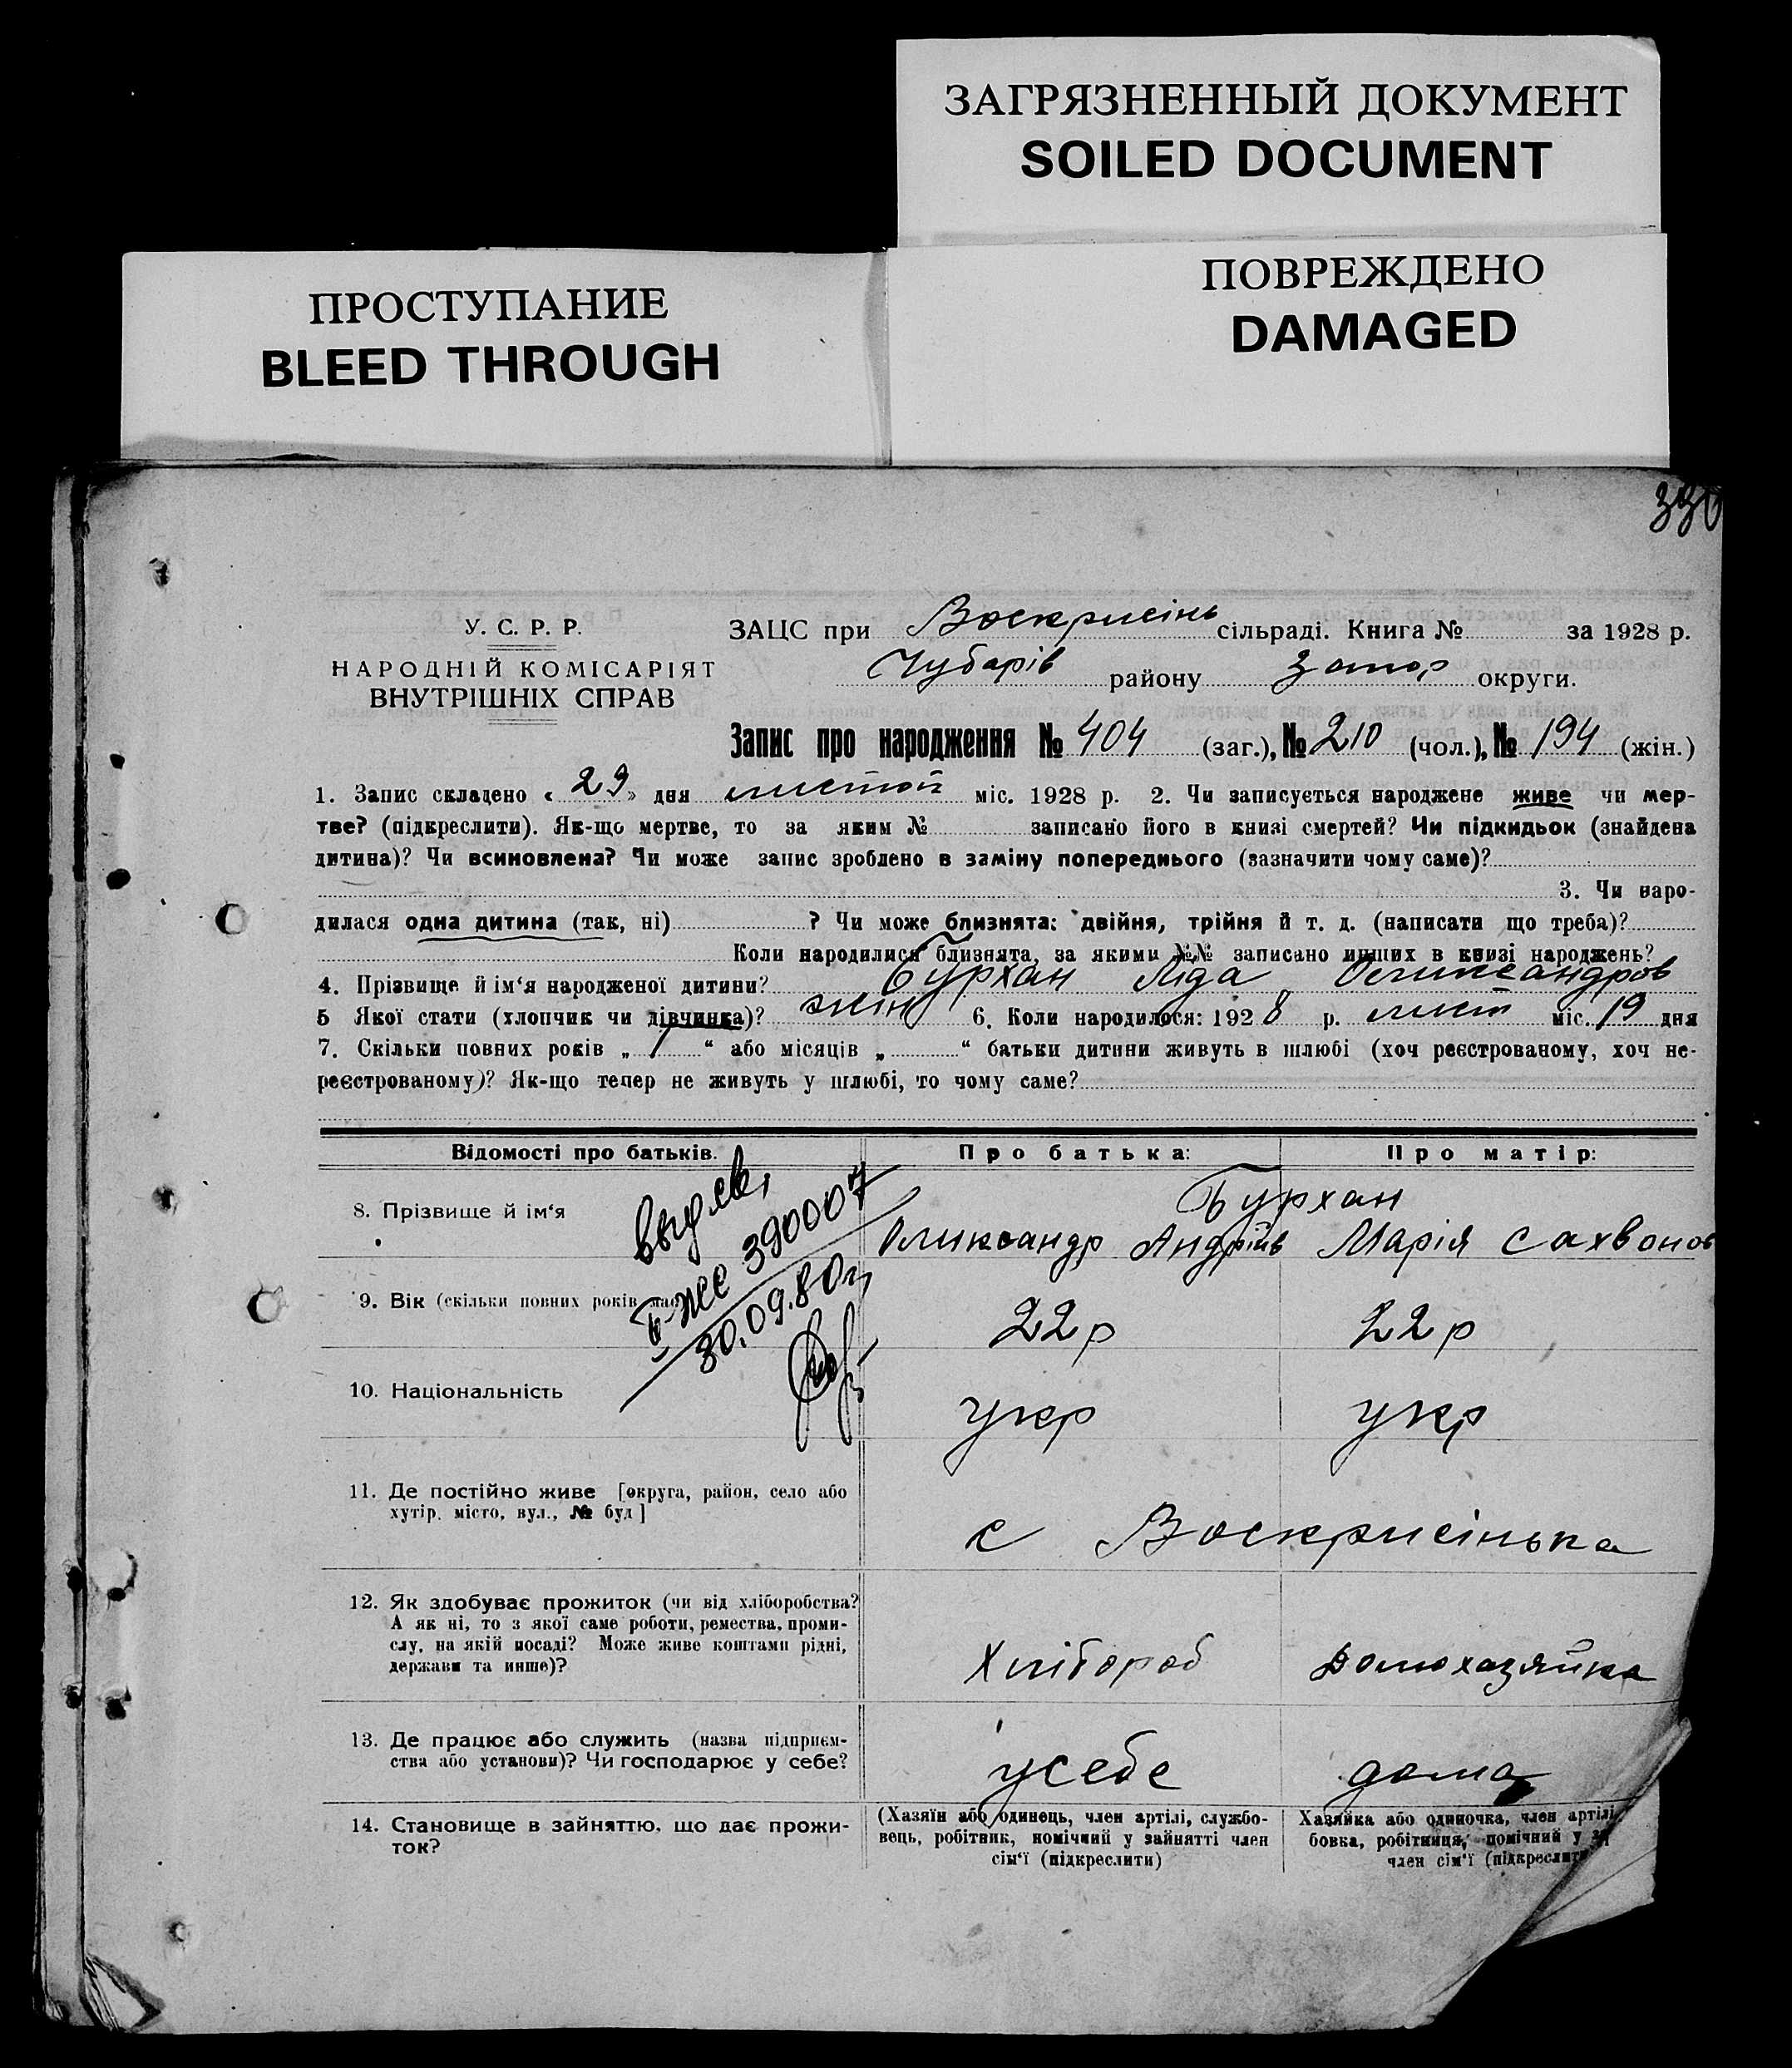 ЗАГРЯЗНЕННЫЙ ДОКУМЕНТ
SOILED DOCUMENT
ПРОСТУПАНИЕ
BLEED THROUGH
ПОВРЕЖДЕНО
DAMAGED
330
У. С. Р. Р.
НАРОДНІЙ КОМІСАРІЯТ
ВНУТРІШНІХ СПРАВ
ЗАЦС при Воскрисінь сільраді. Книга № за 1928 р.
Чубарів району Запор округи.
Запис про народження № 404 (заг.), № 210 (чол.), № 194 (жін.)
1. Запис складено « 29 » дня листоп міс. 1928 р. 2. Чи записується народжене живе чи мер-
тве? (підкреслити). Як-що мертве, то за яким № записано його в книзі смертей? Чи підкидьок (знайдена
дитина)? Чи всиновлена? Чи може запис зроблено в заміну попереднього (зазначити чому саме)?
3. Чи наро-
дилася одна дитина (так, ні) ? Чи може близнята: двійня, трійня й т. д. (написати що треба)?
Коли народилися близнята, за якими №№ записано инших в книзі народжень?
4. Прізвище й ім‘я народженої дитини? Бурхан Ліда Олександров
5 Якої стати (хлопчик чи дівчинка)? жін 6. Коли народилося: 1928 р. лист міс. 19 дня
7. Скільки повних років „ 1 “ або місяців „ “ батьки дитини живуть в шлюбі (хоч реєстрованому, хоч не-
реєстрованому)? Як-що тепер не живуть у шлюбі, то чому саме?
Відомості про батьків. Про батька: Про матір:
8. Прізвище й ім‘я Бурхан
Олександр Андріїв Марія Сахвонов
390007
30.09.80г.
9. Вік (скільки повних років 22р 22р
10. Національність укр укр
11. Де постійно живе [округа, район, село або
хутір. місто, вул., № буд] с Воскрисінька
12. Як здобуває прожиток (чи від хліборобства?
А як ні, то з якої саме роботи, ремества, проми-
слу, на якій посаді? Може живе коштами рідні,
держави та инше)? Хлібороб Домохазяйка
13. Де працює або служить (назва підприєм-
ства або установи)? Чи господарює у себе? усебе дома
14. Становище в зайняттю, що дає прожи-
ток?
(Хазяїн або одинець, член артілі, службо-
вець, робітник, помічний у зайнятті член
сім‘ї (підкреслити)
Хазяйка або одиночка, член артілі
бовка, робітниця, помічний у
член сім‘ї (підкреслити